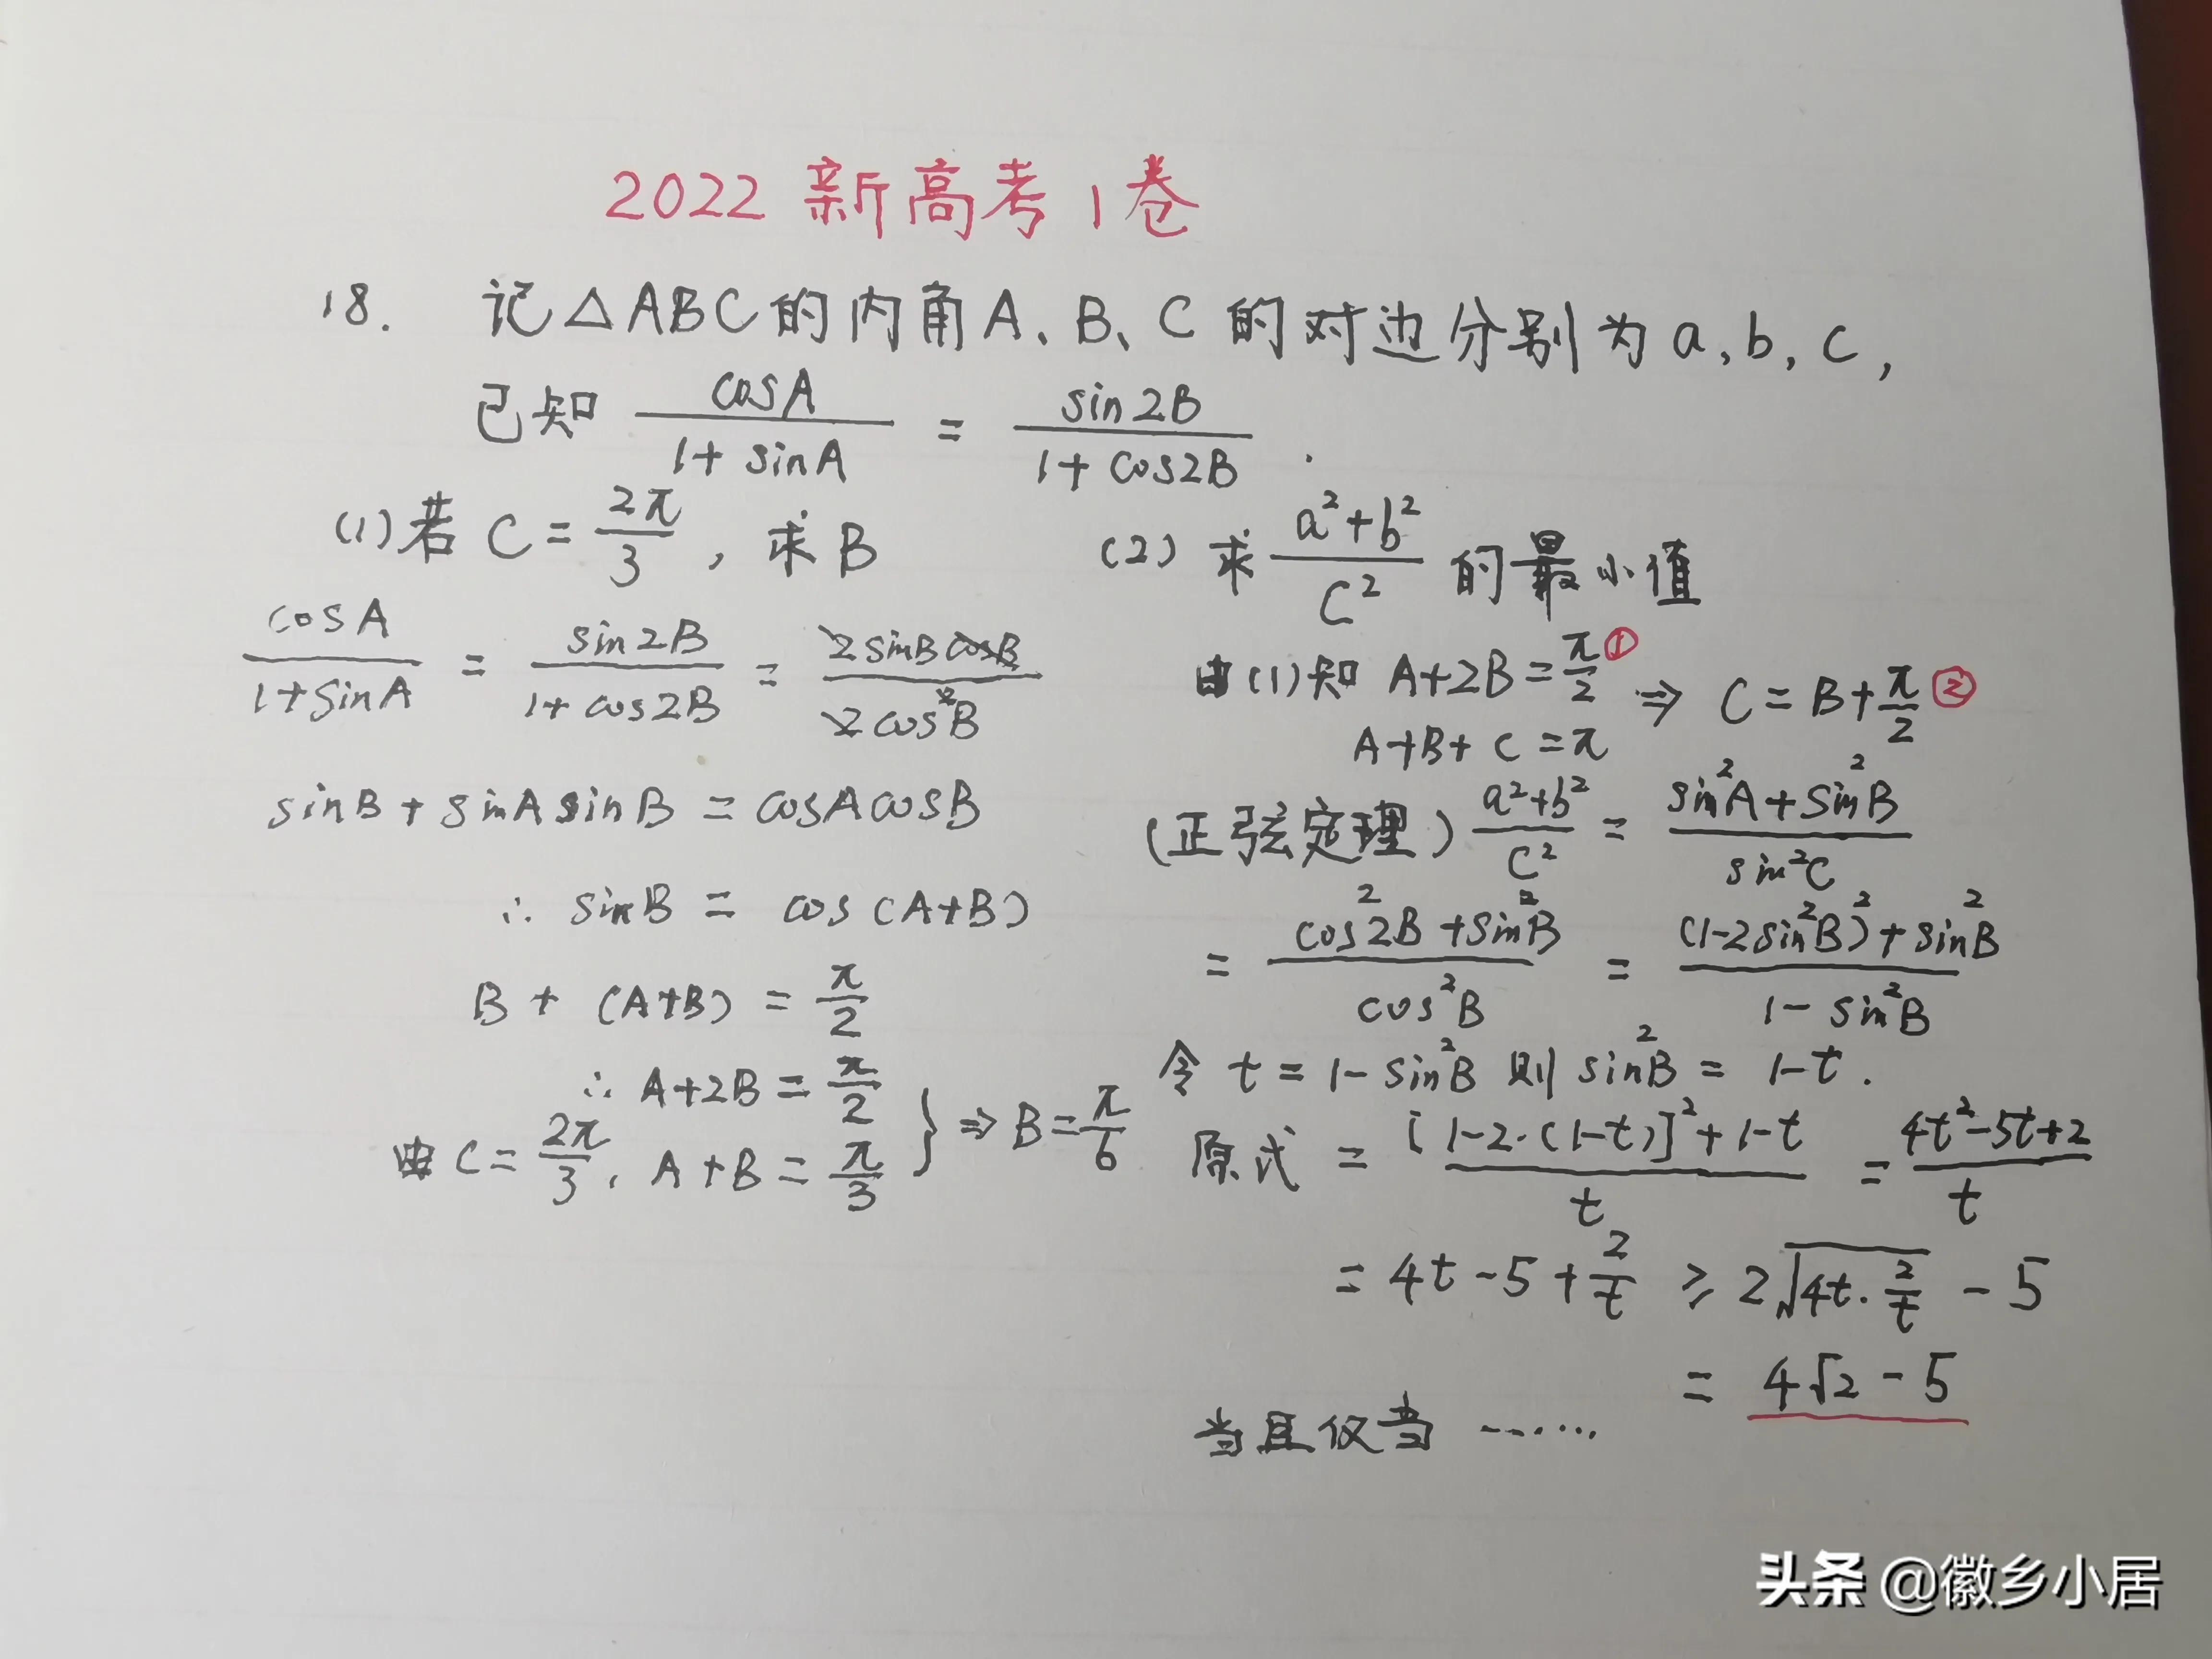 2022 新高考1卷
18. 记△ABC的内角A、B、C的对边分别为a,b,c,
已知 cosA/(1+sinA) = sin2B/(1+cos2B).
(1)若 C=2π/3, 求B
cosA/(1+sinA) = sin2B/(1+cos2B) = 2sinBcosB/2cos²B
sinB+sinAsinB=cosAcosB
∴ sinB = cos(A+B)
B + (A+B) = π/2
∴ A+2B=π/2
由C=2π/3, A+B=π/3 } ⇒ B=π/6
(2) 求 (a²+b²)/C² 的最小值
由(1)知 A+2B=π/2 ① ⇒ C=B+π/2 ②
A+B+C=π
(正弦定理) (a²+b²)/C² = (sin²A+sin²B)/sin²C
= (cos²2B+sin²B)/cos²B = ((1-2sin²B)²+sin²B)/(1-sin²B)
令 t=1-sin²B 则 sin²B=1-t.
原式 = ([1-2·(1-t)]²+1-t)/t = (4t²-5t+2)/t
= 4t-5+2/t ≥ 2√(4t·2/t) -5
= 4√2-5
当且仅当 ……
头条 @徽乡小居